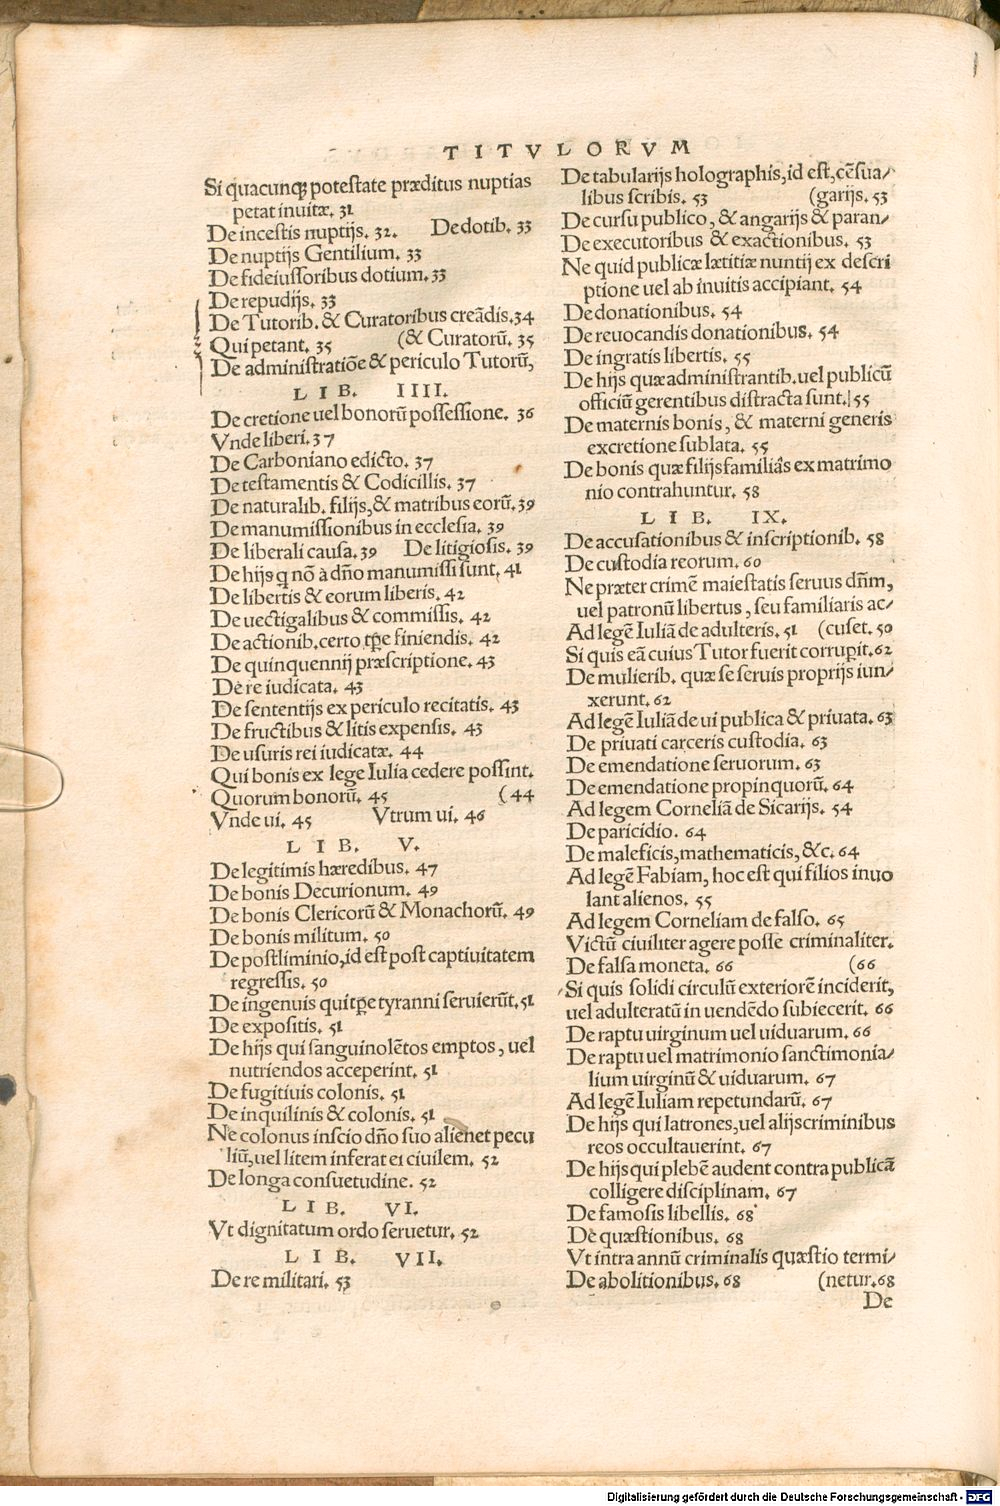 TITVLORVM
Si quacunq; potestate præditus nuptias
petat inuitæ. 31
De incestis nuptijs. 32. De dotib. 33
De nuptijs Gentilium. 33
De fideiussoribus dotium. 33
De repudijs. 33
De Tutorib. & Curatoribus creãdis. 34
Qui petant. 35 (& Curatorũ. 35
De administratiõe & periculo Tutorũ,
LIB. IIII.
De cretione uel bonorũ possessione. 36
Vnde liberi. 37
De Carboniano edicto. 37
De testamentis & Codicillis. 37
De naturalib. filijs, & matribus eorũ. 39
De manumissionibus in ecclesia. 39
De liberali causa. 39 De litigiosis. 39
De hijs q nõ à dño manumissi sunt. 41
De libertis & eorum liberis. 42
De uectigalibus & commissis. 42
De actionib. certo tp̃e finiendis. 42
De quinquennij præscriptione. 43
De re iudicata. 43
De sententijs ex periculo recitatis. 43
De fructibus & litis expensis. 43
De usuris rei iudicatæ. 44
Qui bonis ex lege Iulia cedere possint.
Quorum bonorũ. 45 (44
Vnde ui. 45 Vtrum ui. 46
LIB. V.
De legitimis hæredibus. 47
De bonis Decurionum. 49
De bonis Clericorũ & Monachorũ. 49
De bonis militum. 50
De postliminio, id est post captiuitatem
regressis. 50
De ingenuis qui tp̃e tyranni seruierũt. 51
De expositis. 51
De hijs qui sanguinolẽtos emptos, uel
nutriendos acceperint. 51
De fugitiuis colonis. 51
De inquilinis & colonis. 51
Ne colonus inscio dño suo alienet pecu
liũ, uel litem inferat ei ciuilem. 52
De longa consuetudine. 52
LIB. VI.
Vt dignitatum ordo seruetur. 52
LIB. VII.
De re militari. 53
De tabularijs holographis, id est, cẽsua/
libus scribis. 53 (garijs. 53
De cursu publico, & angarijs & paran/
De executoribus & exactionibus. 53
Ne quid publicæ lætitiæ nuntij ex descri
ptione uel ab inuitis accipiant. 54
De donationibus. 54
De reuocandis donationibus. 54
De ingratis libertis. 55
De hijs quæ administrantib. uel publicũ
officiũ gerentibus distracta sunt. 55
De maternis bonis, & materni generis
excretione sublata. 55
De bonis quæ filijsfamiliâs ex matrimo
nio contrahuntur. 58
LIB. IX.
De accusationibus & inscriptionib. 58
De custodia reorum. 60
Ne præter crimẽ maiestatis seruus dñm,
uel patronũ libertus, seu familiaris ac/
Ad legẽ Iuliã de adulteris. 51 (cuset. 50
Si quis eã cuius Tutor fuerit corrup̃it. 62
De mulierib. quæ se seruis proprijs iun/
xerunt. 62
Ad legẽ Iuliã de ui publica & priuata. 63
De priuati carceris custodia. 63
De emendatione seruorum. 63
De emendatione propinquorũ. 64
Ad legem Corneliã de Sicarijs. 54
De paricidio. 64
De maleficis, mathematicis, &c. 64
Ad legẽ Fabiam, hoc est qui filios inuo
lant alienos. 55
Ad legem Corneliam de falso. 65
Victũ ciuiliter agere posse criminaliter.
De falsa moneta. 66 (66
Si quis solidi circulũ exteriorẽ inciderit,
uel adulteratũ in uendẽdo subiecerit. 66
De raptu uirginum uel uiduarum. 66
De raptu uel matrimonio sanctimonia/
lium uirginũ & uiduarum. 67
Ad legẽ Iuliam repetundarũ. 67
De hijs qui latrones, uel alijs criminibus
reos occultauerint. 67
De hijs qui plebẽ audent contra publicã
colligere disciplinam. 67
De famosis libellis. 68
De quæstionibus. 68
Vt intra annũ criminalis quæstio termi/
De abolitionibus. 68 (netur. 68
De
Digitalisierung gefördert durch die Deutsche Forschungsgemeinschaft - DFG